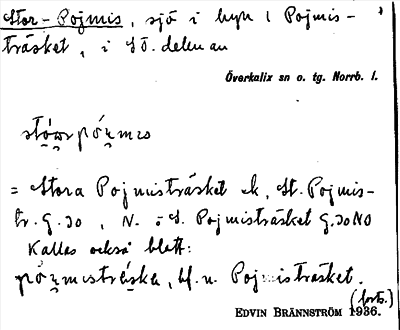 Stor-Pojmis, sjö i byn l Pojmis-
träsket, i SÖ. delen av
Överkalix sn o. tg. Norrb. l.
= Stora Pojmisträsket ek, St. Pojmis-
tr. G.30, N. o S. Pojmisträsket G.30 NO
Kallas också blott:
bf. n. Pojmisträsket.
(forts.)
EDVIN BRÄNNSTRÖM 1936.